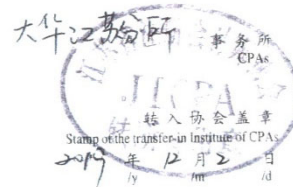 大华江苏所 事务所
CPAs
JICPA
转入协会盖章
Stamp of the transfer-in Institute of CPAs
2019 年 12 月 2 日
/y /m /d